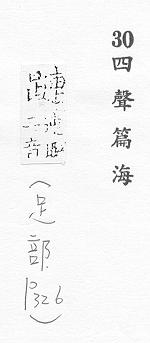 30四聲篇海
(足部P326)